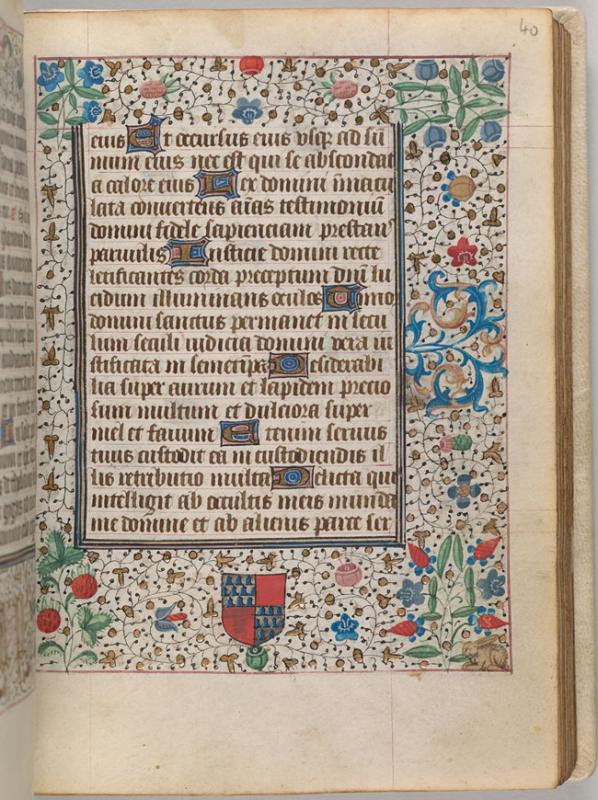 40
eius Et occursus eius usq; ad sū
mum eius nec est qui se abscondat
a calore eius Lex domini īmacu
lata convertens aīas testimoniū
domini fidele sapienciam prestans
parvulis Iusticie domini recte
letificantes corda preceptum dnī lu
cidum illuminans oculos Timor
domini sanctus permanet in secu
lum seculi iudicia domini vera iu
stificata in semetīpa Desiderabi
lia super aurum et lapidem precio
sum multum et dulciora super
mel et favum Etenim servus
tuus custodit ea in custodiendis il
lis retributio multa Delicta quis
intelligit ab occultis meis munda
me domine et ab alienis parce ser